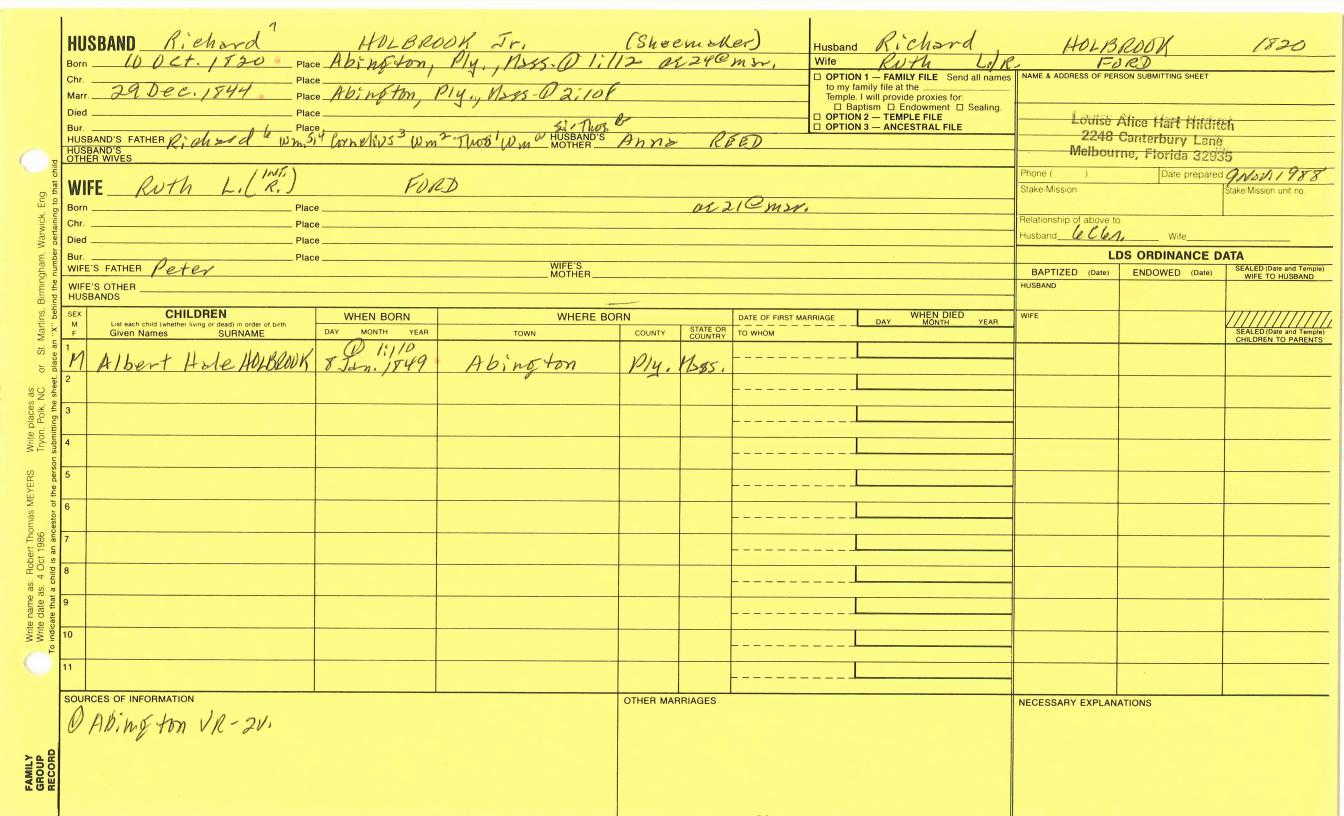 HUSBAND Richard 7 HOLBROOK Jr. (Shoemaker)
Born 10 Oct. 1820 Place Abington, Ply., Mass. ① 1:112 ae 24@mar.
Chr. Place
Marr. 29 Dec. 1844 Place Abington, Ply., Mass ① 2:108
Died Place
Bur. Place
HUSBAND'S FATHER Richard 6 Wm.5,4 Cornelius3 Wm2 Thos1 Wm HUSBAND'S MOTHER Anna REED
HUSBAND'S OTHER WIVES
Husband Richard HOLBROOK 1820
Wife Ruth L./R. FORD
☐ OPTION 1 — FAMILY FILE Send all names
to my family file at the
Temple. I will provide proxies for:
☐ Baptism ☐ Endowment ☐ Sealing.
☐ OPTION 2 — TEMPLE FILE
☐ OPTION 3 — ANCESTRAL FILE
NAME & ADDRESS OF PERSON SUBMITTING SHEET
Louise Alice Hart Hilditch
2248 Canterbury Lane
Melbourne, Florida 32935
Phone ( ) Date prepared 9 Nov. 1988
Stake/Mission Stake/Mission unit no.
Relationship of above to:
Husband 6C6r. Wife
WIFE Ruth L. (INT. R.) FORD
Born Place ae 21@mar.
Chr. Place
Died Place
Bur. Place
WIFE'S FATHER Peter WIFE'S MOTHER
WIFE'S OTHER HUSBANDS
LDS ORDINANCE DATA
BAPTIZED (Date) ENDOWED (Date) SEALED (Date and Temple) WIFE TO HUSBAND
HUSBAND
WIFE
SEALED (Date and Temple) CHILDREN TO PARENTS
SEX M F
CHILDREN
List each child (whether living or dead) in order of birth
Given Names SURNAME
WHEN BORN
DAY MONTH YEAR
WHERE BORN
TOWN COUNTY STATE OR COUNTRY
DATE OF FIRST MARRIAGE
TO WHOM
WHEN DIED
DAY MONTH YEAR
1 M Albert Hale HOLBROOK ① 1:110 8 Jan. 1849 Abington Ply. Mass.
2
3
4
5
6
7
8
9
10
11
SOURCES OF INFORMATION
① Abington VR-2v.
OTHER MARRIAGES
NECESSARY EXPLANATIONS
Write name as: Robert Thomas MEYERS Write places as: Tryon, Polk, NC or St. Martins, Birmingham, Warwick, Eng
Write date as: 4 Oct 1986
To indicate that a child is an ancestor of the person submitting the sheet, place an "X" behind the number pertaining to that child
FAMILY GROUP RECORD